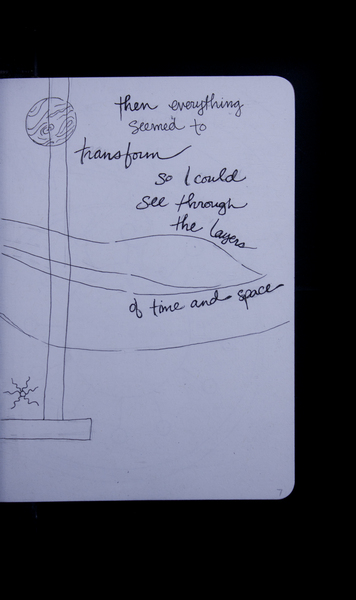 then everything
seemed to
transform
so I could
see through
the layers
of time and space
7